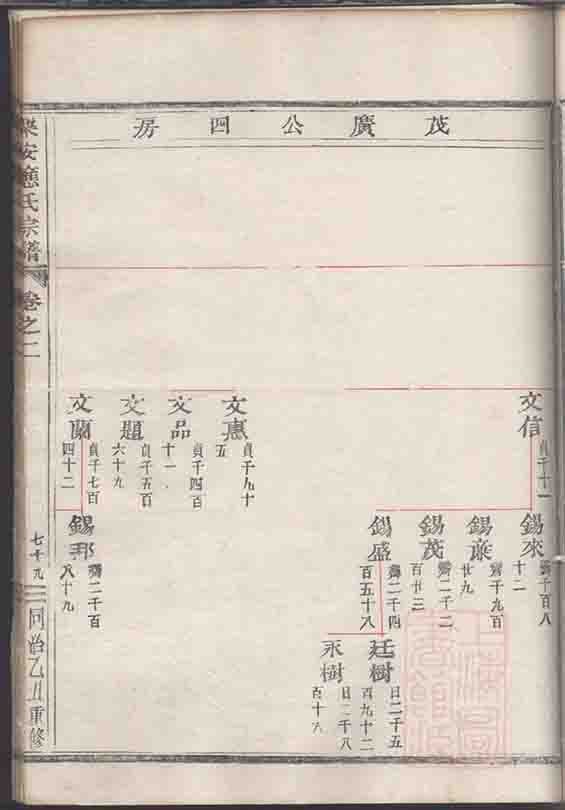 茂廣公四房
文信
貞千十一
錫來
十二
錫
廿九
錫茂
百廿三
錫盛
百五十八
廷樹
日二千五
百九十二
永樹
日二千八
百十六
文惠
貞千九十
五
文品
貞千四百
十一
文題
貞千五百
六十九
文蘭
貞千七百
四十二
錫邦
八十九
安應氏宗譜
卷之二
七十九
同治乙丑重修